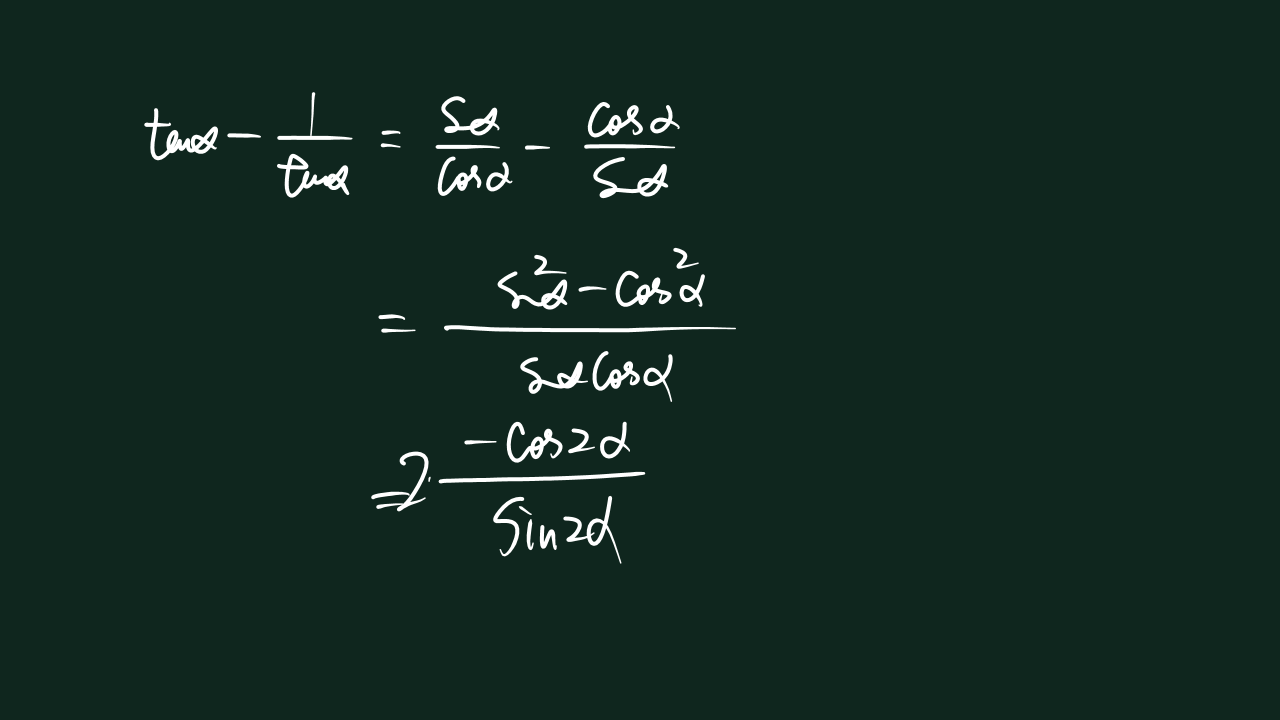 tanα − 1/tanα = Sα/Cosα − Cosα/Sα
= (S²α − Cos²α)/(SαCosα)
= 2·(−Cos2α)/(Sin2α)